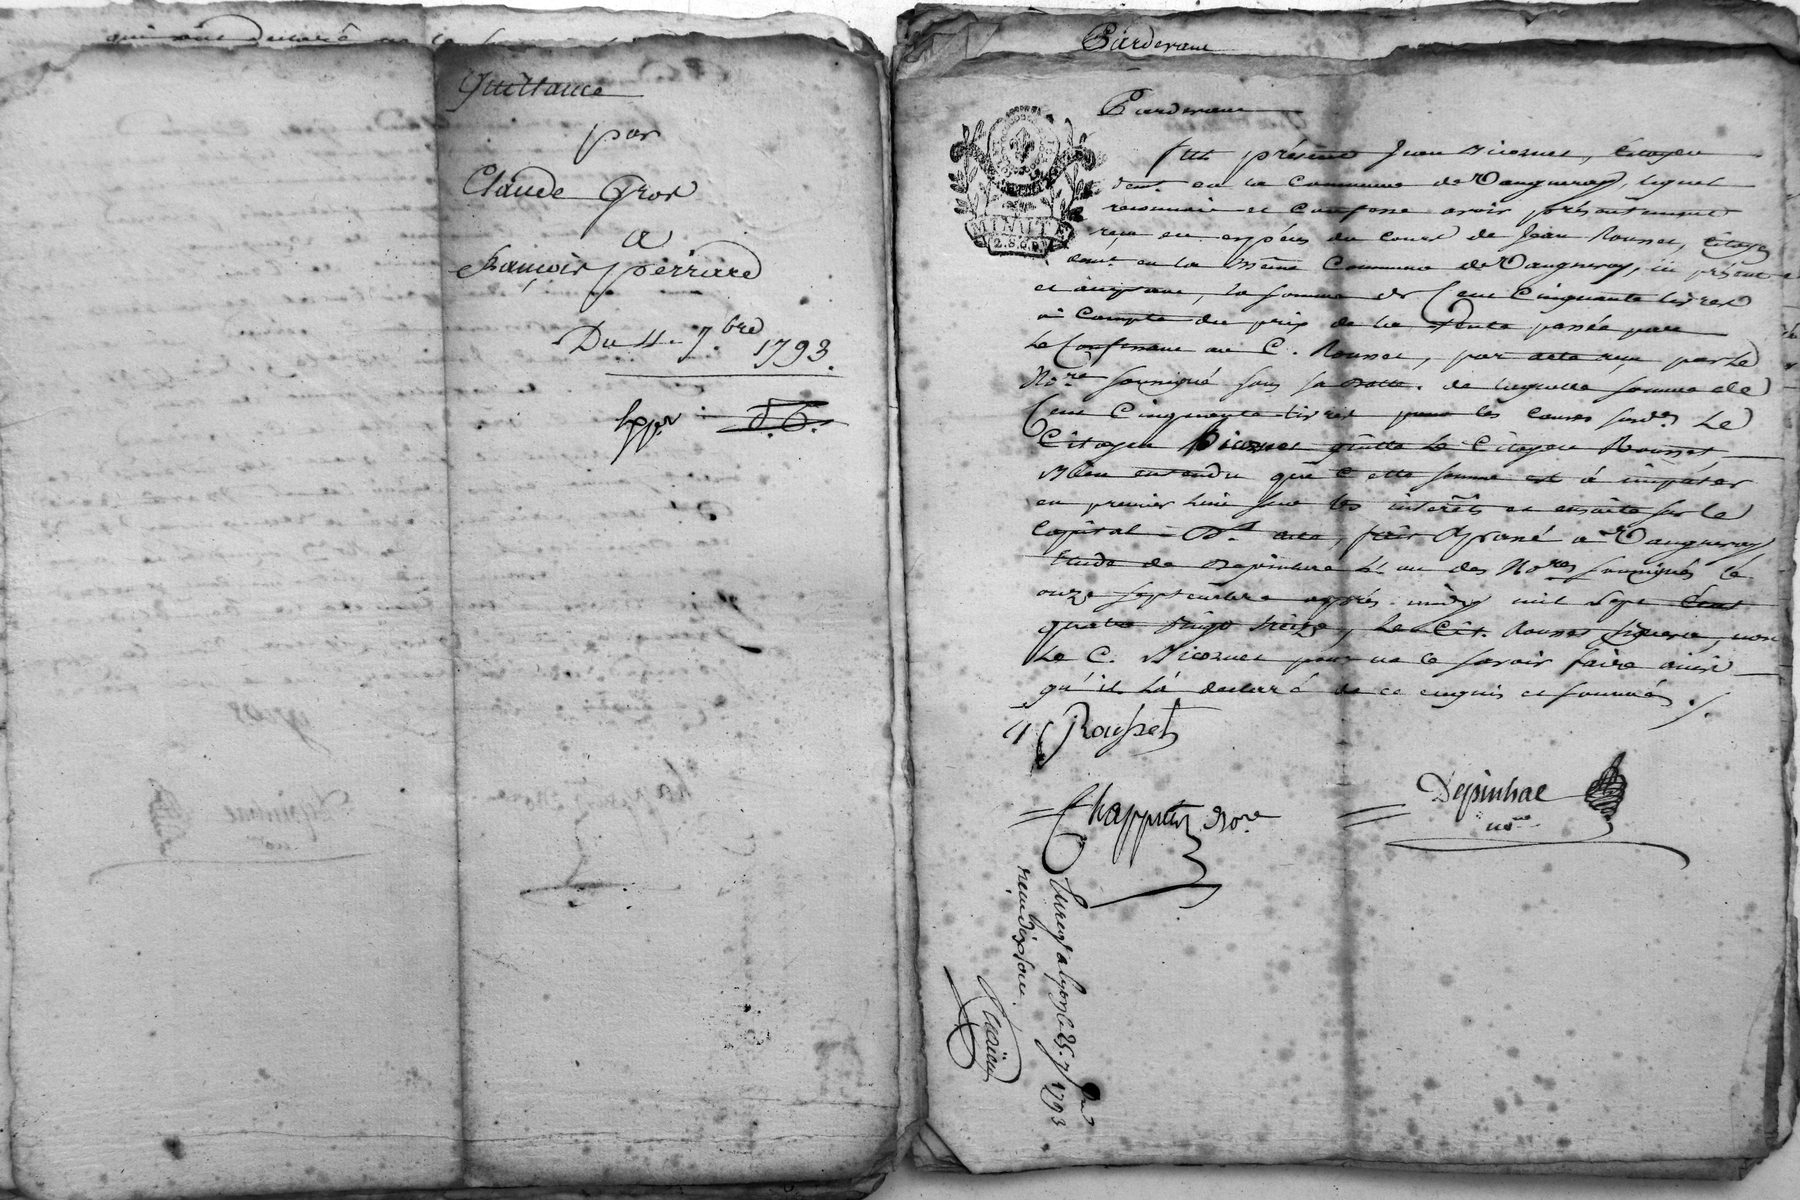 Quittance
par
Claude Gros
a
françois perrard
Du 4. 7.bre 1793.
Parderant
Parderant
fut présent Jean Bicornet, Citoyen
demt. en la Commune de Vaugneray, lequel
reconnait et Confesse avoir présentement
reçu en espèces du cours de Jean Rousset, Citoyen
demt. en la même Commune de Vaugneray, ici présent
et acceptant, la somme de Cent Cinquante livres
a Compte du prix de la Vente passée par
Le Confessant au C. Rousset, par acte reçu par Le
No.re soussigné sous sa datte. de laquelle somme de
Cent Cinquante livres pour les causes susd.es Le
Citoyen Bicornet quitte Le Citoyen Rousset
Bien entendu que Cette somme est à imputer
en premier lieu sur les intérêts et ensuite sur Le
Capital = D.t acte, fait & passé a Vaugneray
Etude de Depinhac L'un des No.res soussignés le
onze septembre après midy mil sept Cent
quatre vingt treize, Le Cit. Rousset signera, non
Le C. Bicornet pour ne le savoir faire ainsi
qu'il l'a declaré de ce enquis et sommés.
Rousset
Chappuis No.re
Depinhac
no.re
Enregt. a Lyon le 25. 7.bre 1793
reçu dix sous.